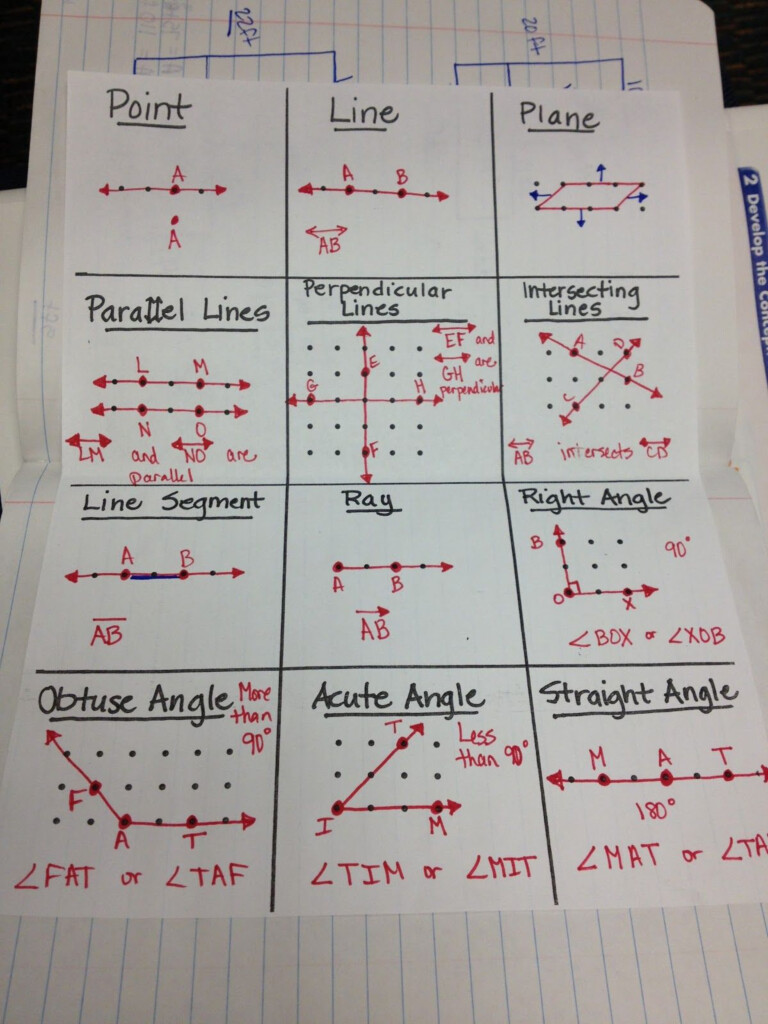 22ft
20ft
Point
A
A
Line
A B
AB
Plane
Parallel Lines
L M
N O
LM and NO are
parallel
Perpendicular
Lines
E
G H
F
EF and
GH are
perpendicular
Intersecting
Lines
A D
B
C
AB intersects CD
Line Segment
A B
AB
Ray
A B
AB
Right Angle
B
90°
O X
∠BOX or ∠XOB
Obtuse Angle
More
than
90°
F
A T
∠FAT or ∠TAF
Acute Angle
Less
than 90°
T
I M
∠TIM or ∠MIT
Straight Angle
M A T
180°
∠MAT or ∠TA
2 Develop the Concept